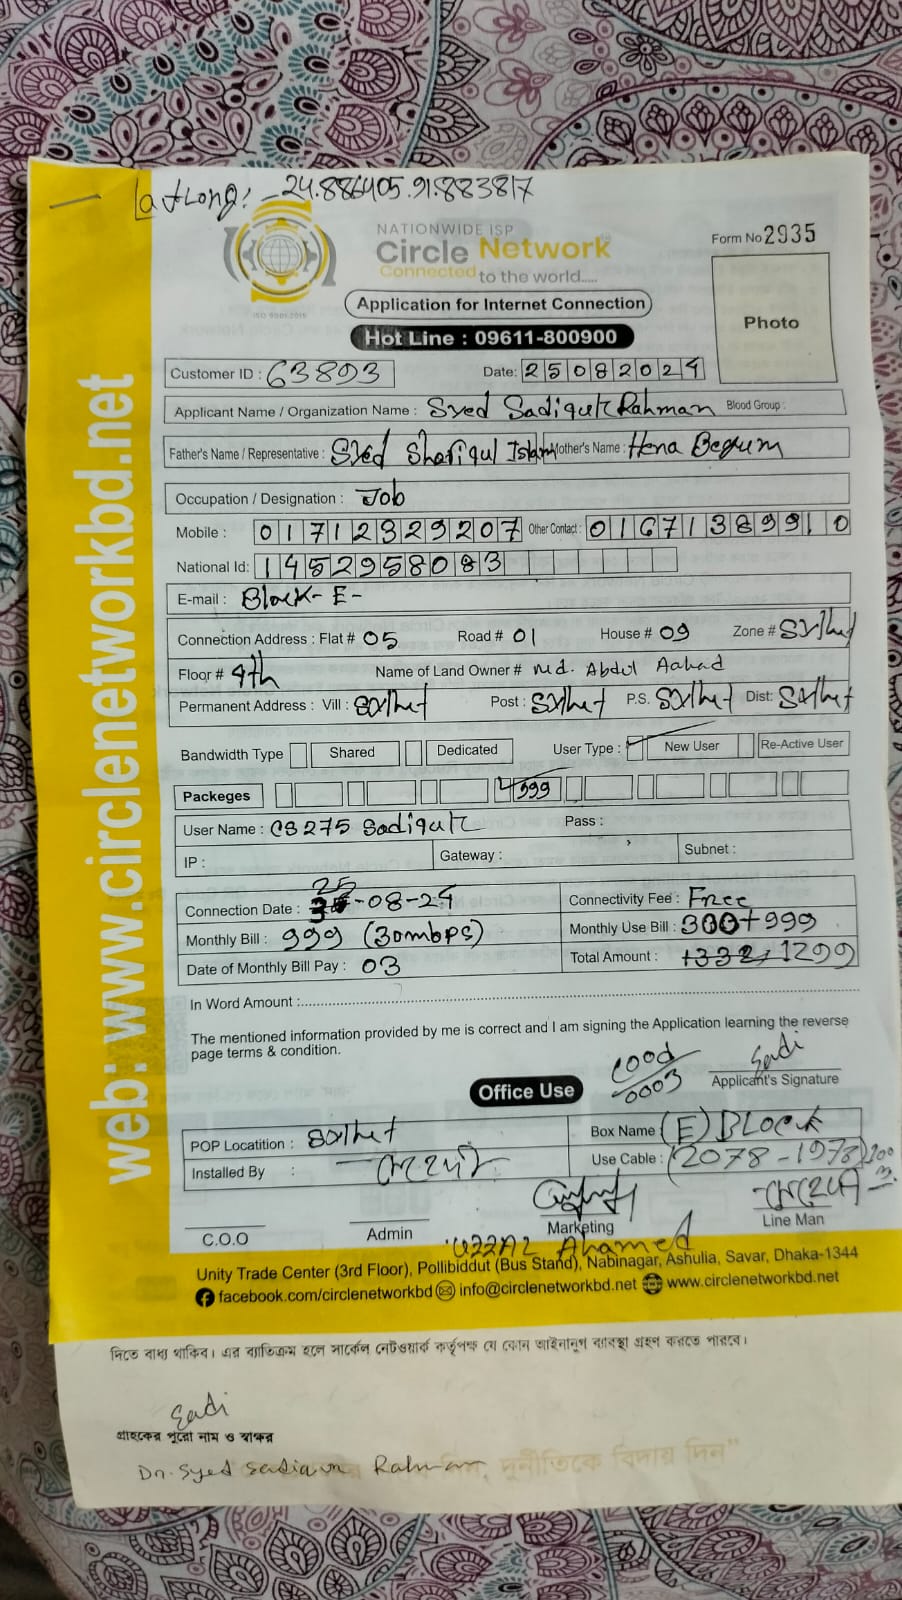 Lat Long: - 24.886405.91.883817
NATIONWIDE ISP
Circle Network
Connected to the world.....
ISO 9001:2015
Form No 2935
Application for Internet Connection
Photo
Hot Line : 09611-800900
Customer ID : 63893 Date: 25082024
Applicant Name / Organization Name : Syed Sadiqur Rahman Blood Group :
Father's Name / Representative : Syed Shafiqul Islam Mother's Name : Hena Begum
Occupation / Designation : Job
Mobile : 01712329207 Other Contact : 01671389910
National Id: 1452958083
E-mail : Block - E -
Connection Address : Flat # 05 Road # 01 House # 09 Zone # Sylhet
Floor # 4th Name of Land Owner # Md. Abdul Aahad
Permanent Address : Vill : Sylhet Post : Sylhet P.S. Sylhet Dist: Sylhet
Bandwidth Type Shared Dedicated User Type : New User Re-Active User
Packeges 999
User Name : CS275 Sadiqur Pass :
IP : Gateway : Subnet :
Connection Date : 25-08-24 Connectivity Fee : Free
Monthly Bill : 999 (30mbps) Monthly Use Bill : 300+999
Date of Monthly Bill Pay : 03 Total Amount : 1299
In Word Amount :
The mentioned information provided by me is correct and I am signing the Application learning the reverse
page terms & condition.
Sadi
Applicant's Signature
Office Use
POP Locatition : Sylhet Box Name (E) BLOCK
Installed By : Use Cable : (2078-1978) 100
C.O.O Admin Marketing Line Man
UZZAL Ahamed
Unity Trade Center (3rd Floor), Pollibiddut (Bus Stand), Nabinagar, Ashulia, Savar, Dhaka-1344
facebook.com/circlenetworkbd info@circlenetworkbd.net www.circlenetworkbd.net
web: www.circlenetworkbd.net
দিতে বাধ্য থাকিব। এর ব্যতিক্রম হলে সার্কেল নেটওয়ার্ক কর্তৃপক্ষ যে কোন আইনানুগ ব্যবস্থা গ্রহণ করতে পারবে।
Sadi
গ্রাহকের পুরো নাম ও স্বাক্ষর
Dr. Syed Sadiqur Rahman
দুর্নীতিকে বিদায় দিন"